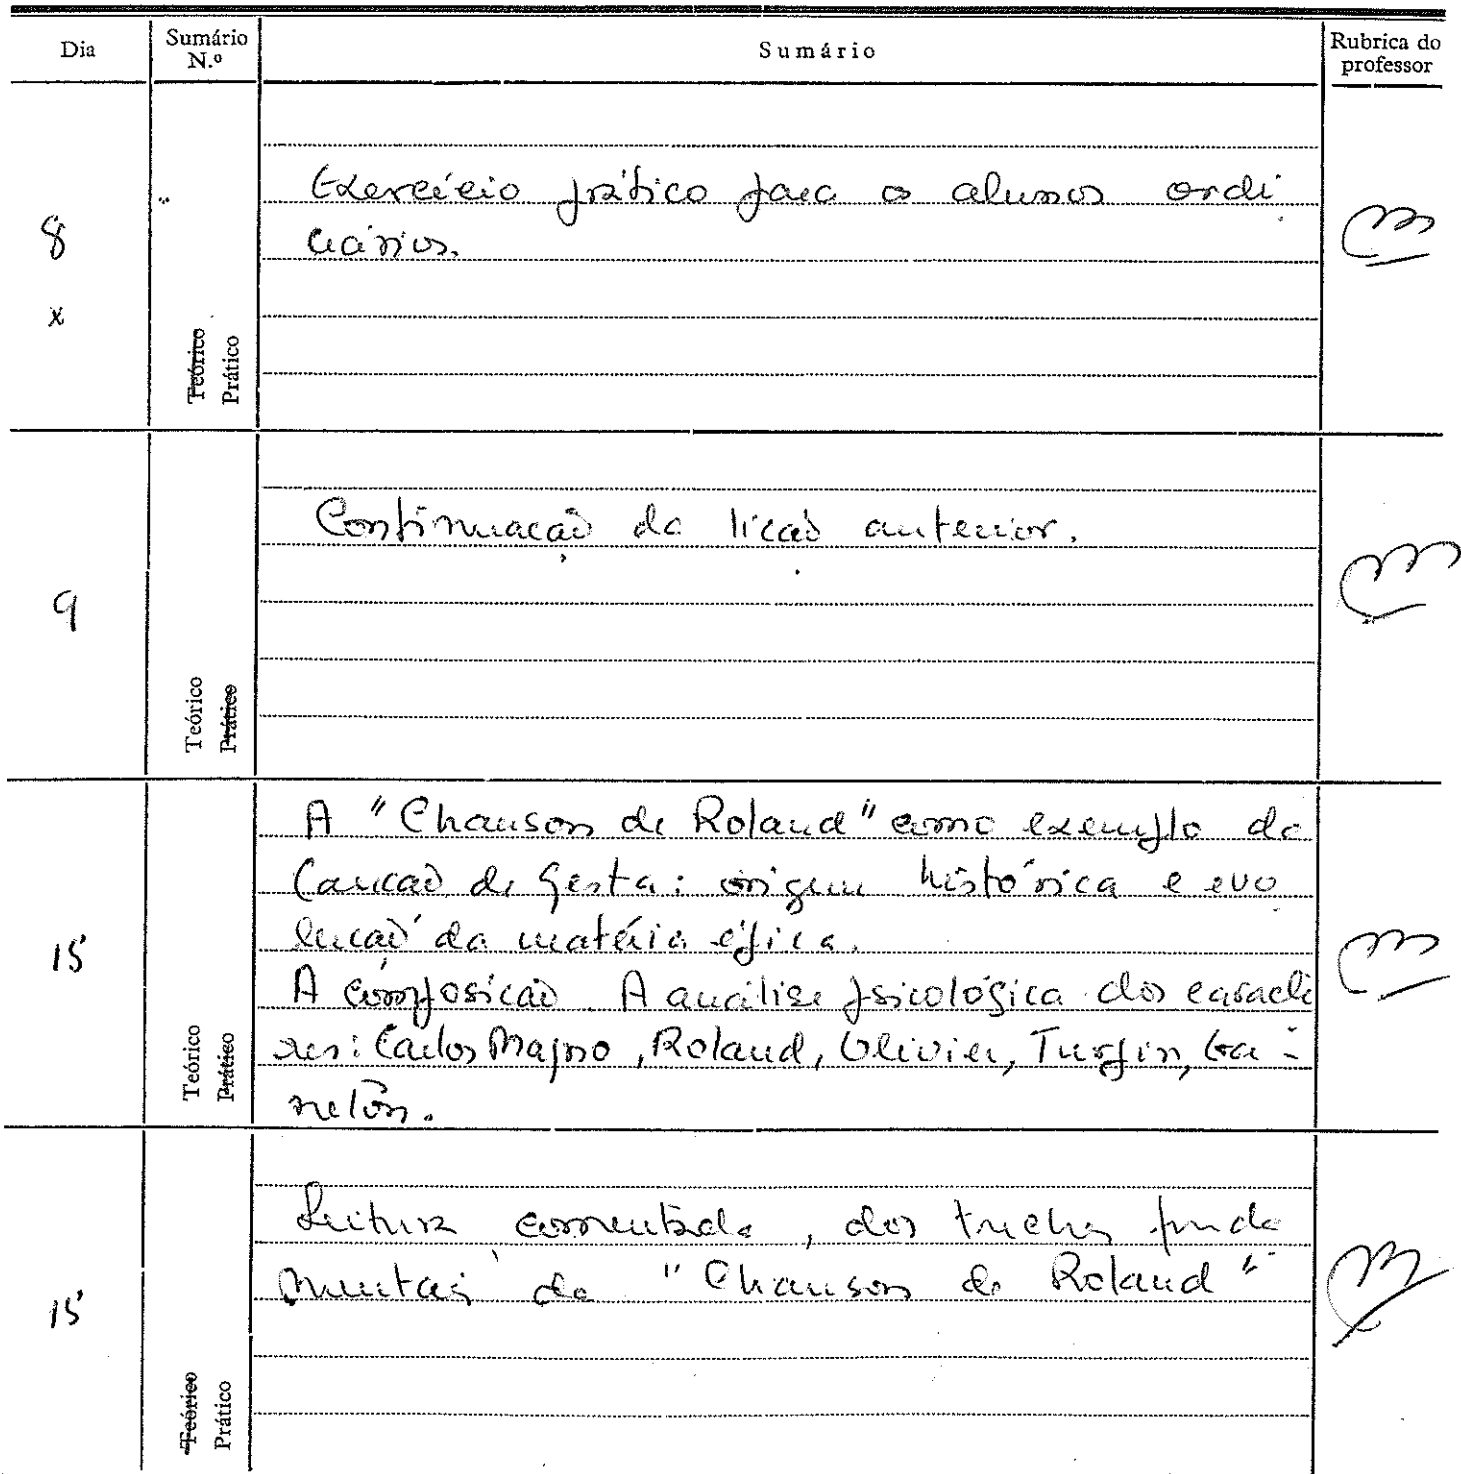 Dia Sumário N.º Sumário Rubrica do professor
8 Exercício prático para os alunos ordi
nários.
x
Teórico Prático
9 Continuação da lição anterior.
Teórico Prático
A "Chanson de Roland" como exemplo da
Canção de Gesta: origem histórica e evo
lução da matéria épica.
15
A composição. A análise psicológica dos caracte
res: Carlos Magno, Roland, Olivier, Turpin, Ga-
nelon.
Teórico Prático
Leitura comentada, dos trechos funda
mentais da "Chanson de Roland"
15
Teórico Prático